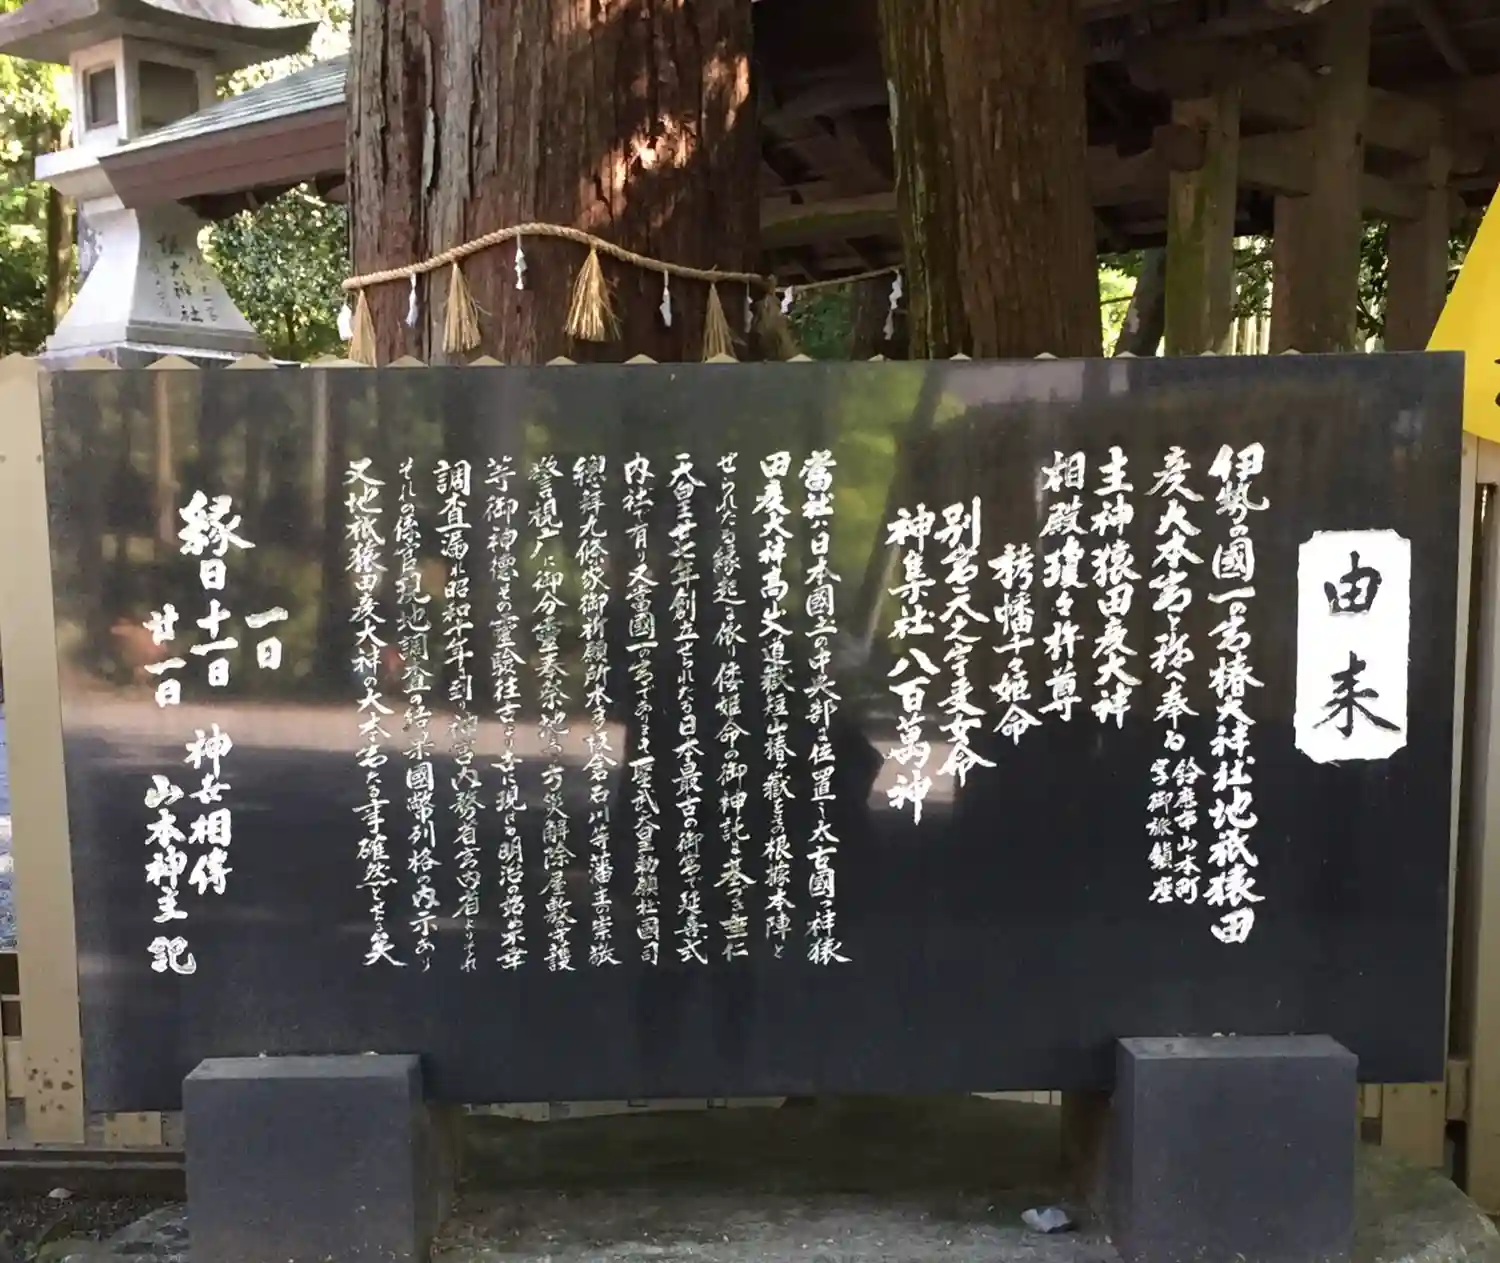 由来
伊勢の國一の宮椿大神社地祇猿田
彦大本宮と称へ奉る 鈴鹿市山本町
宮御旅鎮座
主神猿田彦大神
相殿瓊々杵尊
栲幡千々姫命
別宮天之宇受女命
神集社八百萬神
當社ハ日本國土の中央部に位置し太古國つ神猿
田彦大神高山入道嶽短山椿ヶ嶽をその根據本陣と
せられたる縁起に依り倭姫命の御神託に基づき垂仁
天皇三廿七年創立せられたる日本最古の御宮で延喜式
内社で有り又當國一の宮であります 聖武天皇勅願社國司
總拝九條家御祈願所水 板倉石川等藩主の崇敬
警視庁に御分霊奉
等御神徳その霊験往古より幸に現はる明治の始め不幸
調査漏れ昭和十年年到り神宮内務省宮内省よりそれ
それの係官現地調査の結果國幣列格の内示あり
又地祇猿田彦大神の大本宮たる事確然とせる矣
一日
縁日十一日
廿一日
神世相傳
山本神主 記